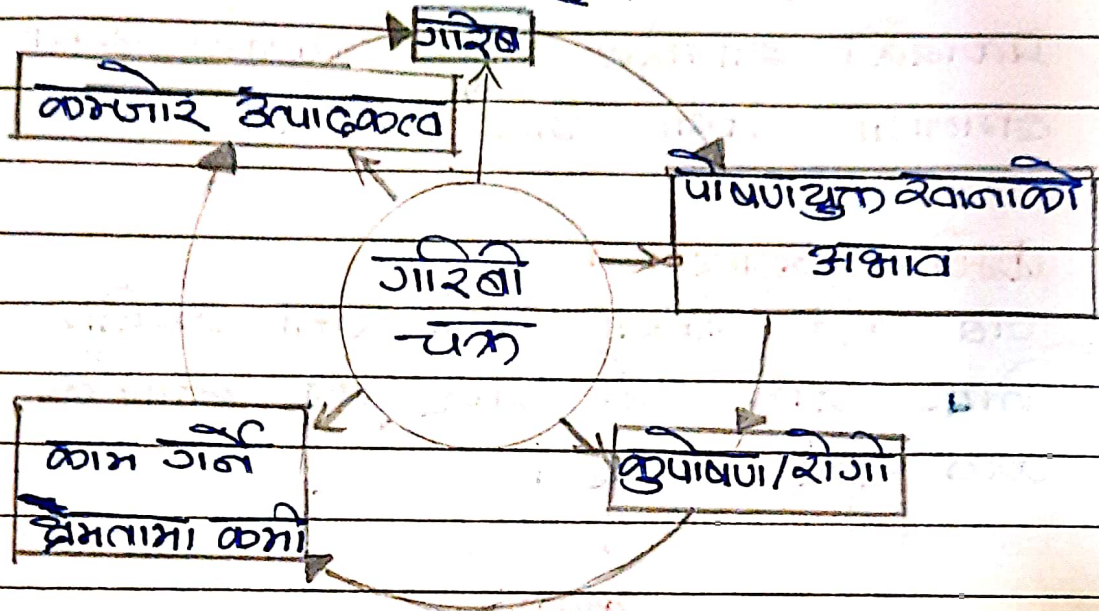 गरिब
कमजोर उत्पादकत्व
पोषणयुक्त खानाको
अभाव
गरिबी
चक्र
काम गर्ने
क्षमतामा कमी
कुपोषण/रोगी